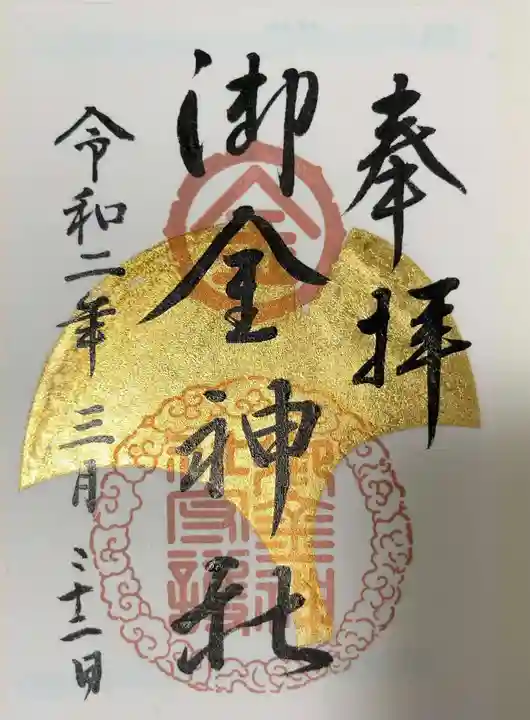 奉拝
御金神社
令和二年 三月 二十二日